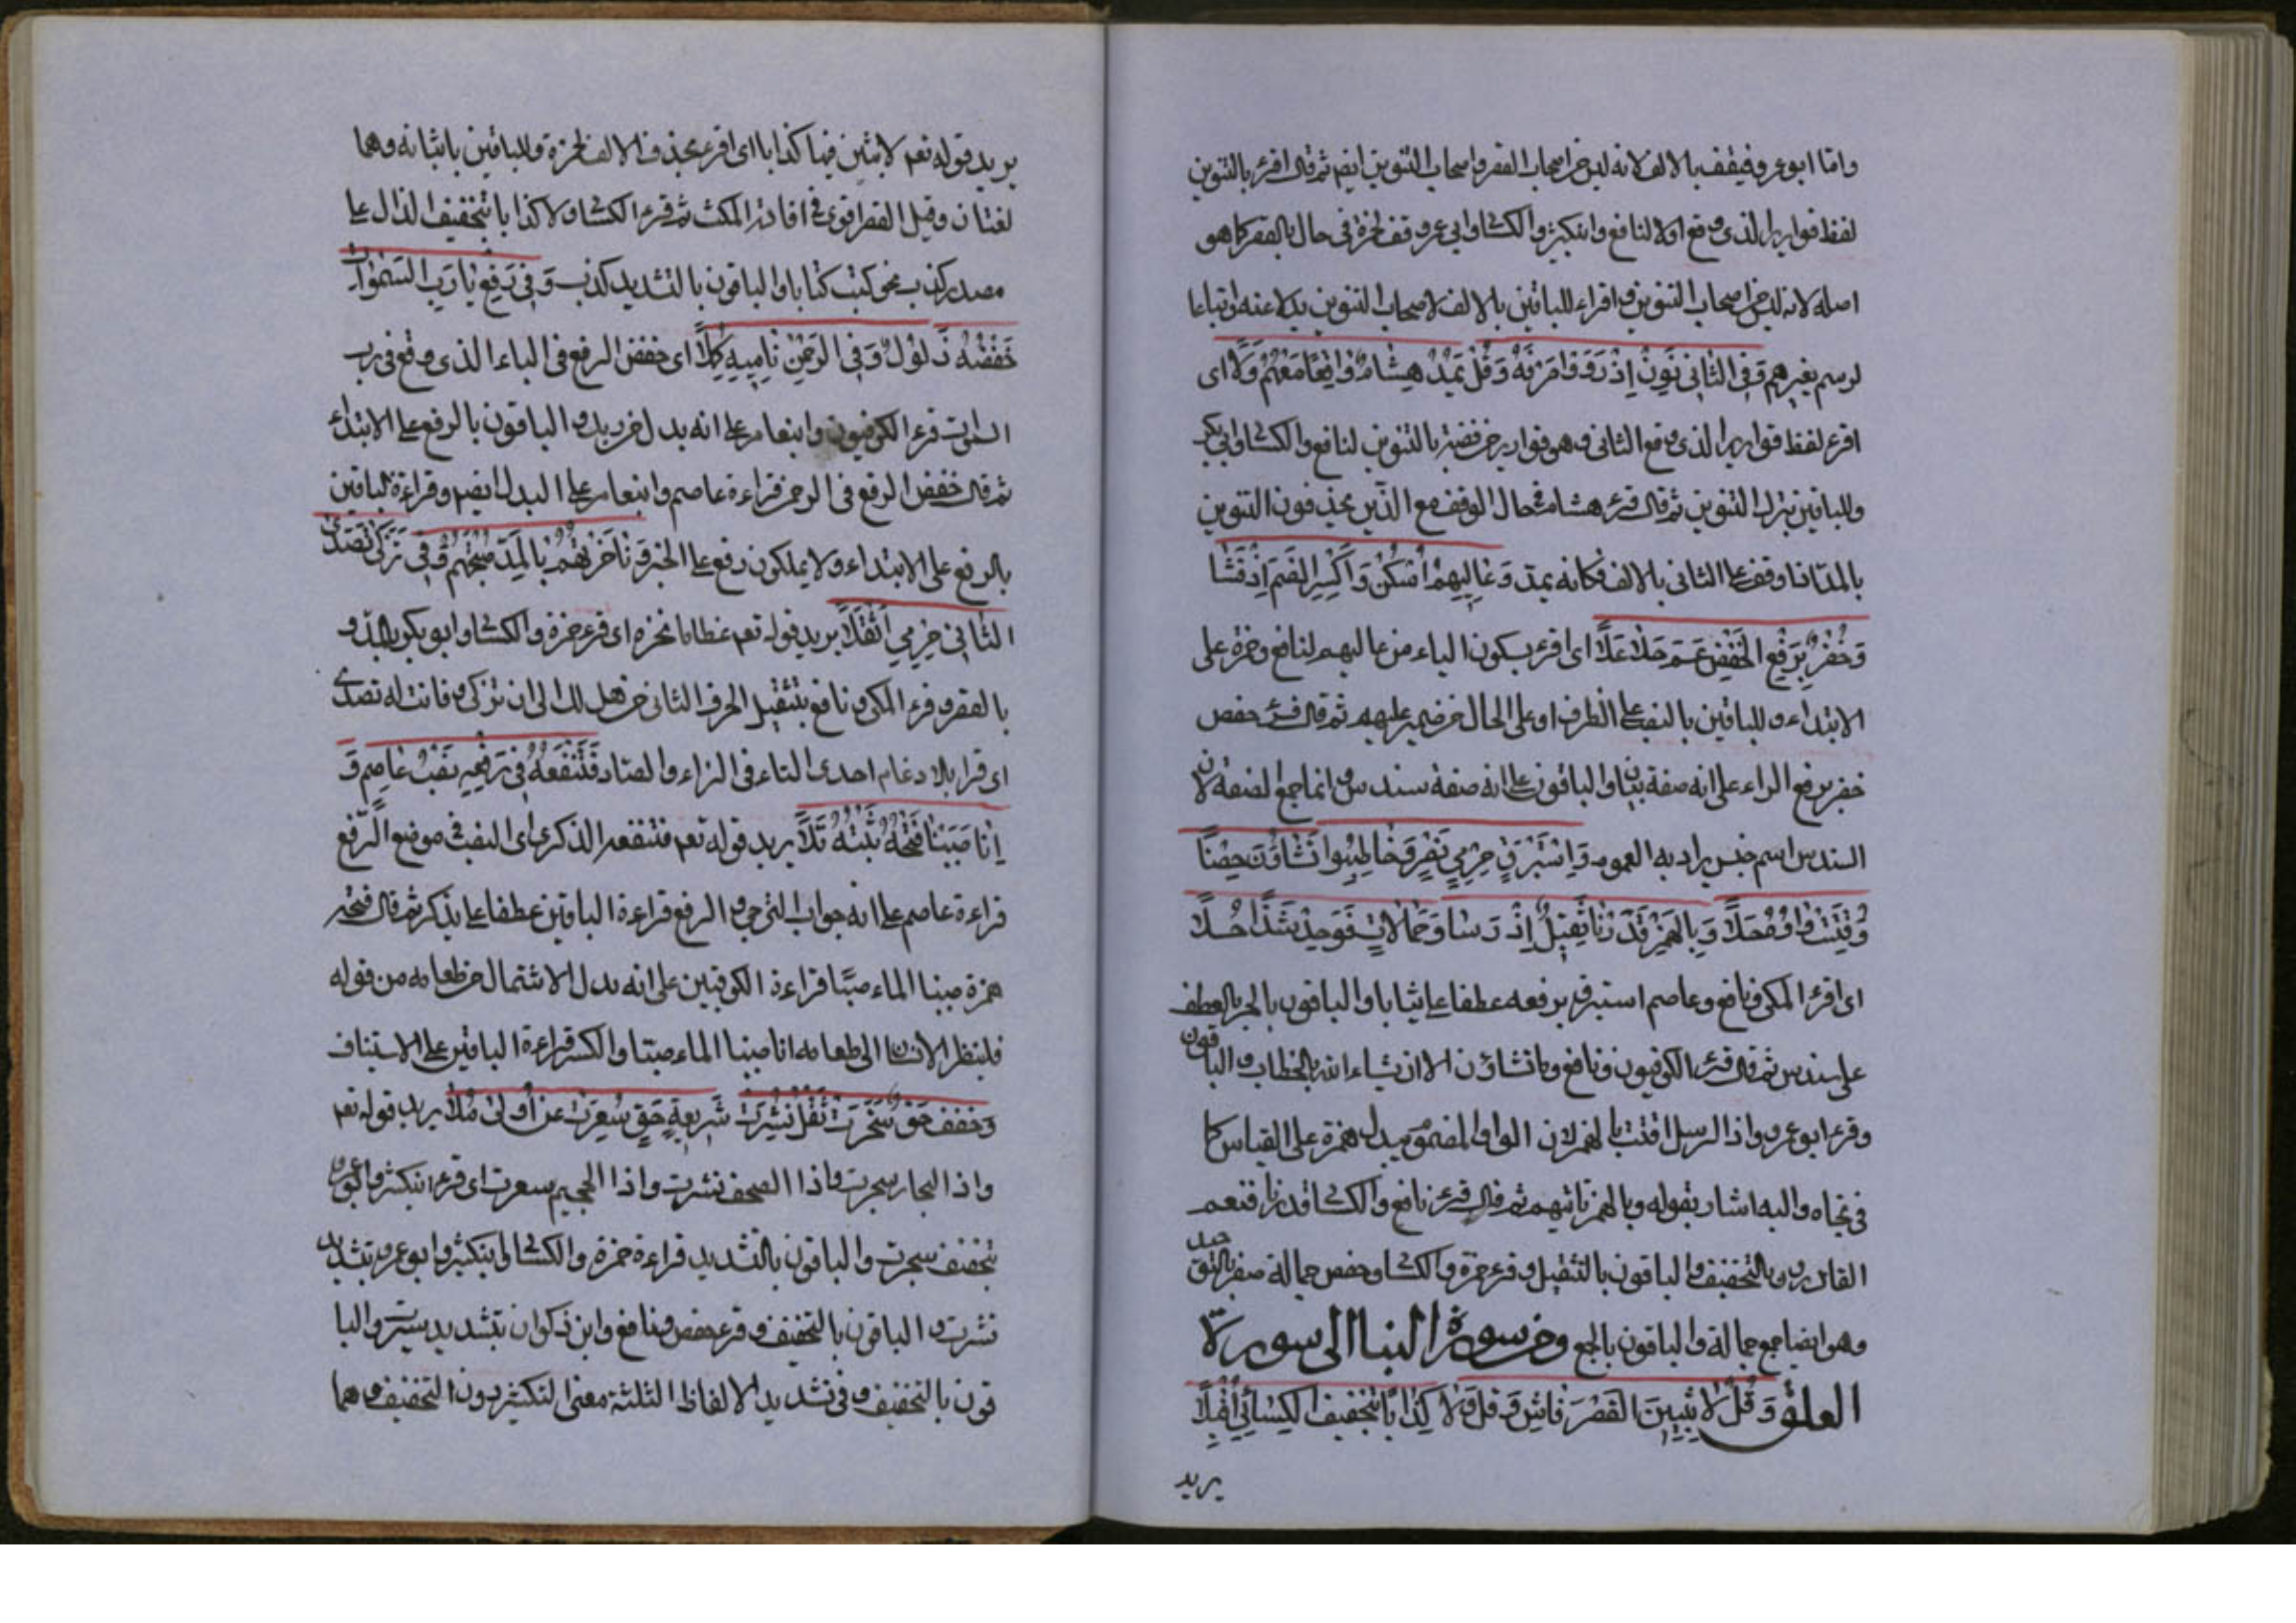 واما ابو عمرو فيقف بالالف لانه ليس من اصحاب القصر واصحاب التنوين ايضا ثم قال اقرء بالتنوين
لفظ قواريرا الذى وقع اولا لنافع وابنكثير والكساوابي عمرو وقف لحمزة فى حال بالقصر كما هو
اصله لانه ليس من اصحاب التنوين واقراء للباقين بالالف لاصحاب التنوين بدلا عنه واتباعا
لرسم بغيرهم وَفِى الثَّانِى نَوِّنْ اِذْ رَوَوْا صَرْفَهُ وَقُلْ يَمُدُّ هِشَامٌ وَاقِفًا مَعْهُمُ وَلَا اى
اقرء لفظ قواريرا الذى وقع الثانى وهو قوارير من فضة بالتنوين لنافع والكساوابى بكر
وللباقين بترك التنوين ثم قال قرء هشام فى حال الوقف مع الذين يحذفون التنوين
بالمد اذا وقف على الثانى بالالف فكانه يمد وَعَالِيهِمْ اُسْكُنْ وَاكْسِرِ الضَّمَّ اِذْ فَشَا
وَخُضْرٌ بِرَفْعِ الْخَفْضِ عَمَّ حَلَا عَلَا اى اقرء بسكون الياء من عاليهم لنافع وحمزة على
الابتداء وللباقين بالنصب على الظرف او على الحال من ضمير عليهم ثم قال قرء حفص
خضر برفع الراء على انه صفة ثياب والباقون على انه صفة سندس وانما جمع لصفة لان
السندس اسم جنس يراد به العموم وَاِسْتَبْرَقٌ حِرْمِيُّ نَصْرٍ وَخَاطَبُوا تَشَاؤُنَ حِصْنٌ
وُقِّتَتْ وَاوُهُ حَلَا وَبِالْهَمْزِ قَدَّرْنَا ثَقِيلٌ اِذْ رَسَا وَجِمَالَاتٌ فَوَحِّدْ شَذًا عَلَا
اى اقرء المكى ونافع وعاصم استبرق برفعه عطفا على ثياب والباقون بالجر بالعطف
على سندس ثم قال قرء الكوفيون ونافع وما تشاؤن الا ان يشاء الله بالخطاب والباقون
وقرء ابو عمرو واذا الرسل اقتت بالهمز لان الواو المضموم يبدل همزة على القياس كما
فى تجاه واليه اشار بقوله وبالهمز باقيهم ثم قال قرء نافع والكسا قدرنا فنعم
القادرون بالتخفيف والباقون بالتثقيل وقرء حمزة والكساوحفص جمالة صفر بالتوحيد
وهو ايضا جمع جمالة والباقون بالجمع ومن سورة النبا الى سورة
العلق وَقُلْ لَابِثِينَ الْقَصْرُ فَاشٍ وَقُلْ وَلَا كِذَابًا بِتَخْفِيفِ الْكِسَائِيِّ اَقْبَلَا
يريد
يريد قوله تعم لابثين فيها كذابا اى اقرء بحذف الالف لحمزة وللباقين باثباته وهما
لغتان وقيل القصر اقوى فى افادة المكث ثم قرء الكساولا كذابا بتخفيف الذال على
مصدر كذب نحو كتب كتابا والباقون بالتشديد كذب وَفِى رَفْعِ بَا رَبُّ السَّمٰوَاتِ
خَفْضُهُ ذَلُولٌ وَفِى الرَّحْمٰنِ نَامِيهِ كَمَّلَا اى خفض الرفع فى الباء الذى وقع فى رب
السموت قرء الكوفيون وابنعامر على انه بدل من ربك والباقون بالرفع على الابتداء
ثم قال خفض الرفع فى الرحمن قراءة عاصم وابنعامر على البدل ايضم وقراءة الباقين
بالرفع على الابتداء ولا يملكون رفع على الخبر وَنَاخِرَةً بِالْمَدِّ صُحْبَتُهُمْ وَفِى تَزَكّٰى تَصَدّٰى
الثَّانِى حِرْمِيٌّ اثْقَلَا يريد قوله تعم عظاما نخرة اى قرء حمزة والكساوابو بكر بالمد و
بالقصر وقرء المكى ونافع بتثقيل الحرف الثانى من هل لك الى ان تزكى وفانت له تصدى
اى قرا بالادغام احدى التاء فى الزاء والصاد فَتَنْفَعُهُ فِى رَفْعِهِ نَصْبُ عَاصِمٍ وَ
اَنَّا صَبَبْنَا فَتْحُهُ ثَبْتُهُ تَلَا يريد قوله تعم فتنفعه الذكرى اى النصب فى موضع الرفع
قراءة عاصم على انه جواب الترجى والرفع قراءة الباقين عطفا على يذكر ثم قال فتح
همزة صببنا الماء صبًا قراءة الكوفيين على انه بدل الاشتمال من طعامه من قوله
فلينظر الانسان الى طعامه انا صببنا الماء صبتا والكسر قراءة الباقين على الاستيناف
وَخَفَّفَ حَقٌّ سُجِّرَتْ ثِقْلُ نُشِّرَتْ شَرِيعَةُ حَقٍّ سُعِّرَتْ عَنْ اُولِى مَلَا يريد قوله تعم
واذا البحار سجرت واذا الصحف نشرت واذا الجحيم سعرت اى قرء ابنكثير وابو عمرو
بتخفيف سجرت والباقون بالتشديد قراءة حمزة والكساوابنكثير وابو عمرو بتشديد
نشرت والباقون بالتخفيف وقرء حفص ونافع وابن ذكوان بتشديد سعرت والبا
قون بالتخفيف وفى تشديد الالفاظ الثلثة معنى لتكثير دون التخفيف وهما